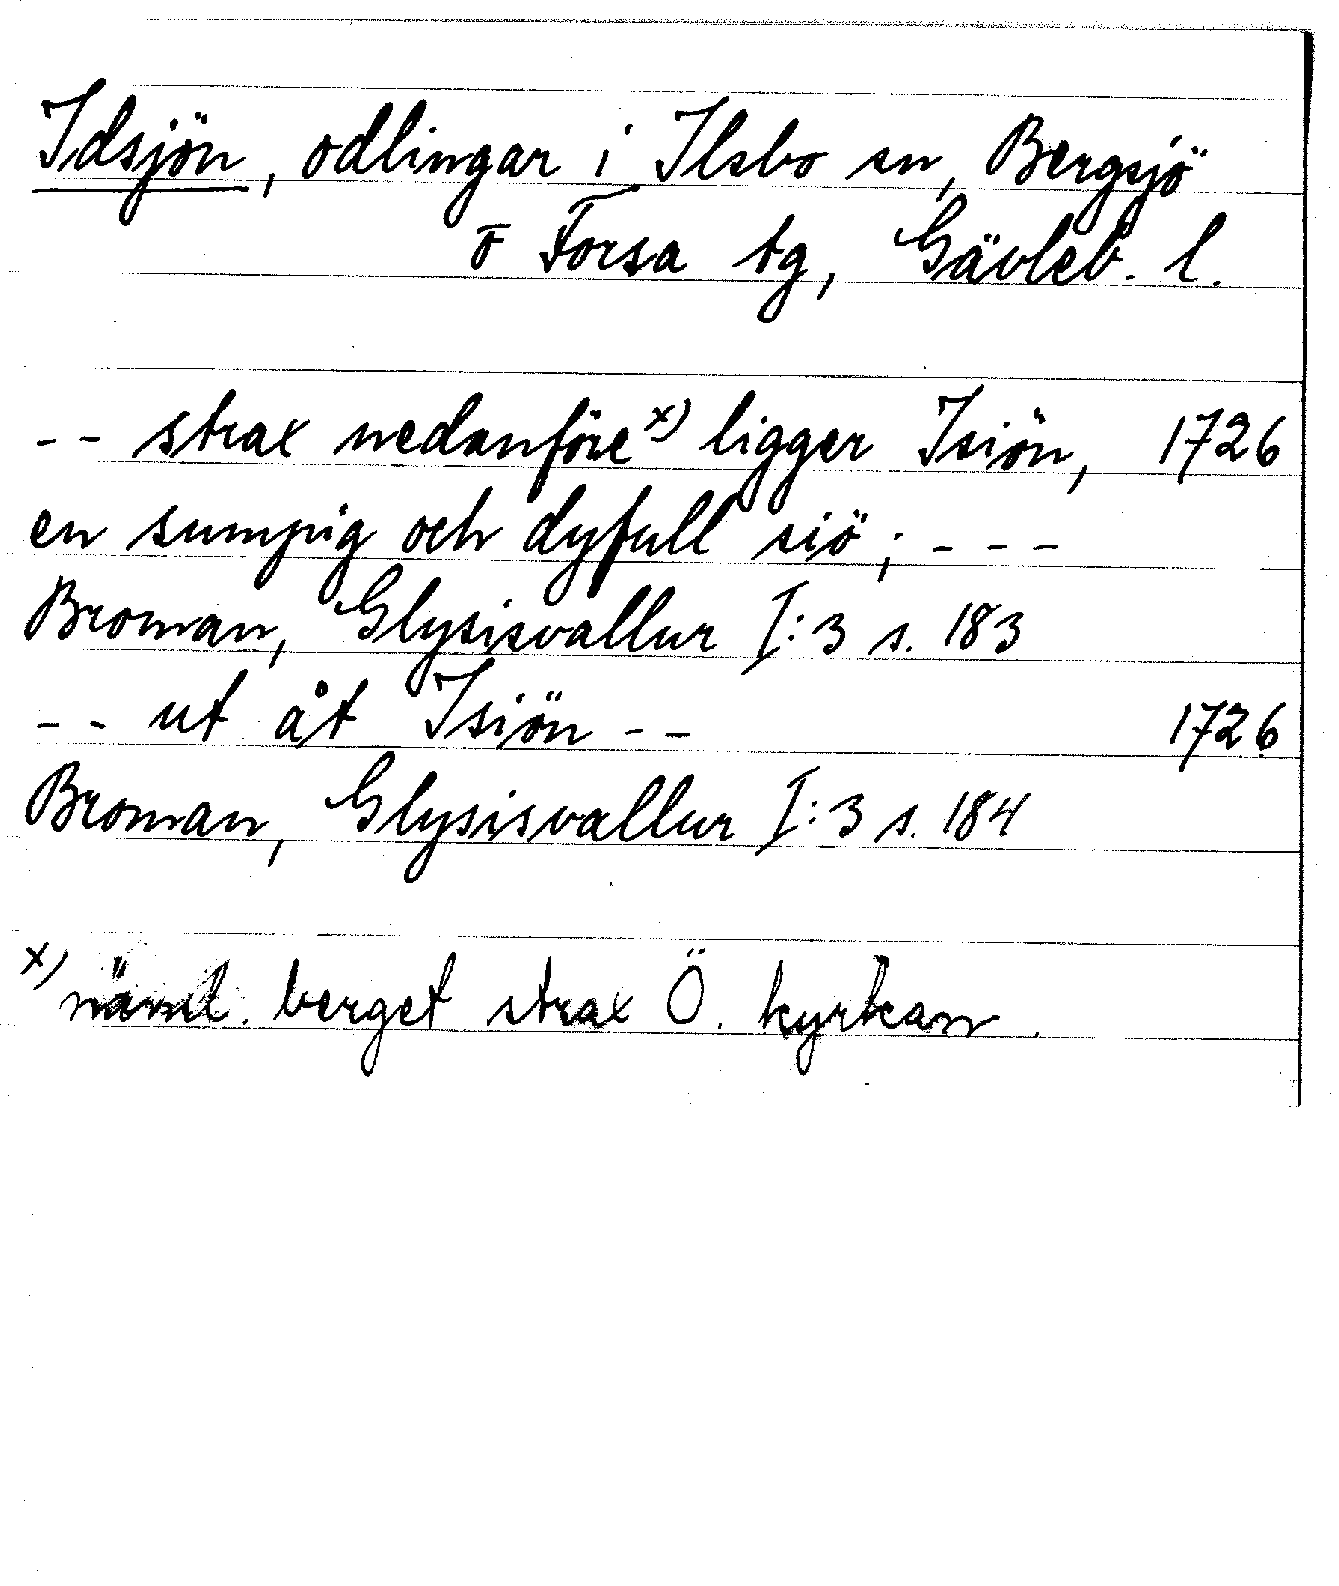 Idsjön, odlingar i Ilsbo sn, Bergsjö
o Forsa tg, Gävleb. l.
-- strax nedanföre x) ligger Isiön, 1726
en sumpig och dyfull siö; ---
Broman, Glysisvallur I:3 s. 183
-- ut åt Isiön -- 1726
Broman, Glysisvallur I:3 s. 184
x) näml. berget strax Ö. kyrkan.